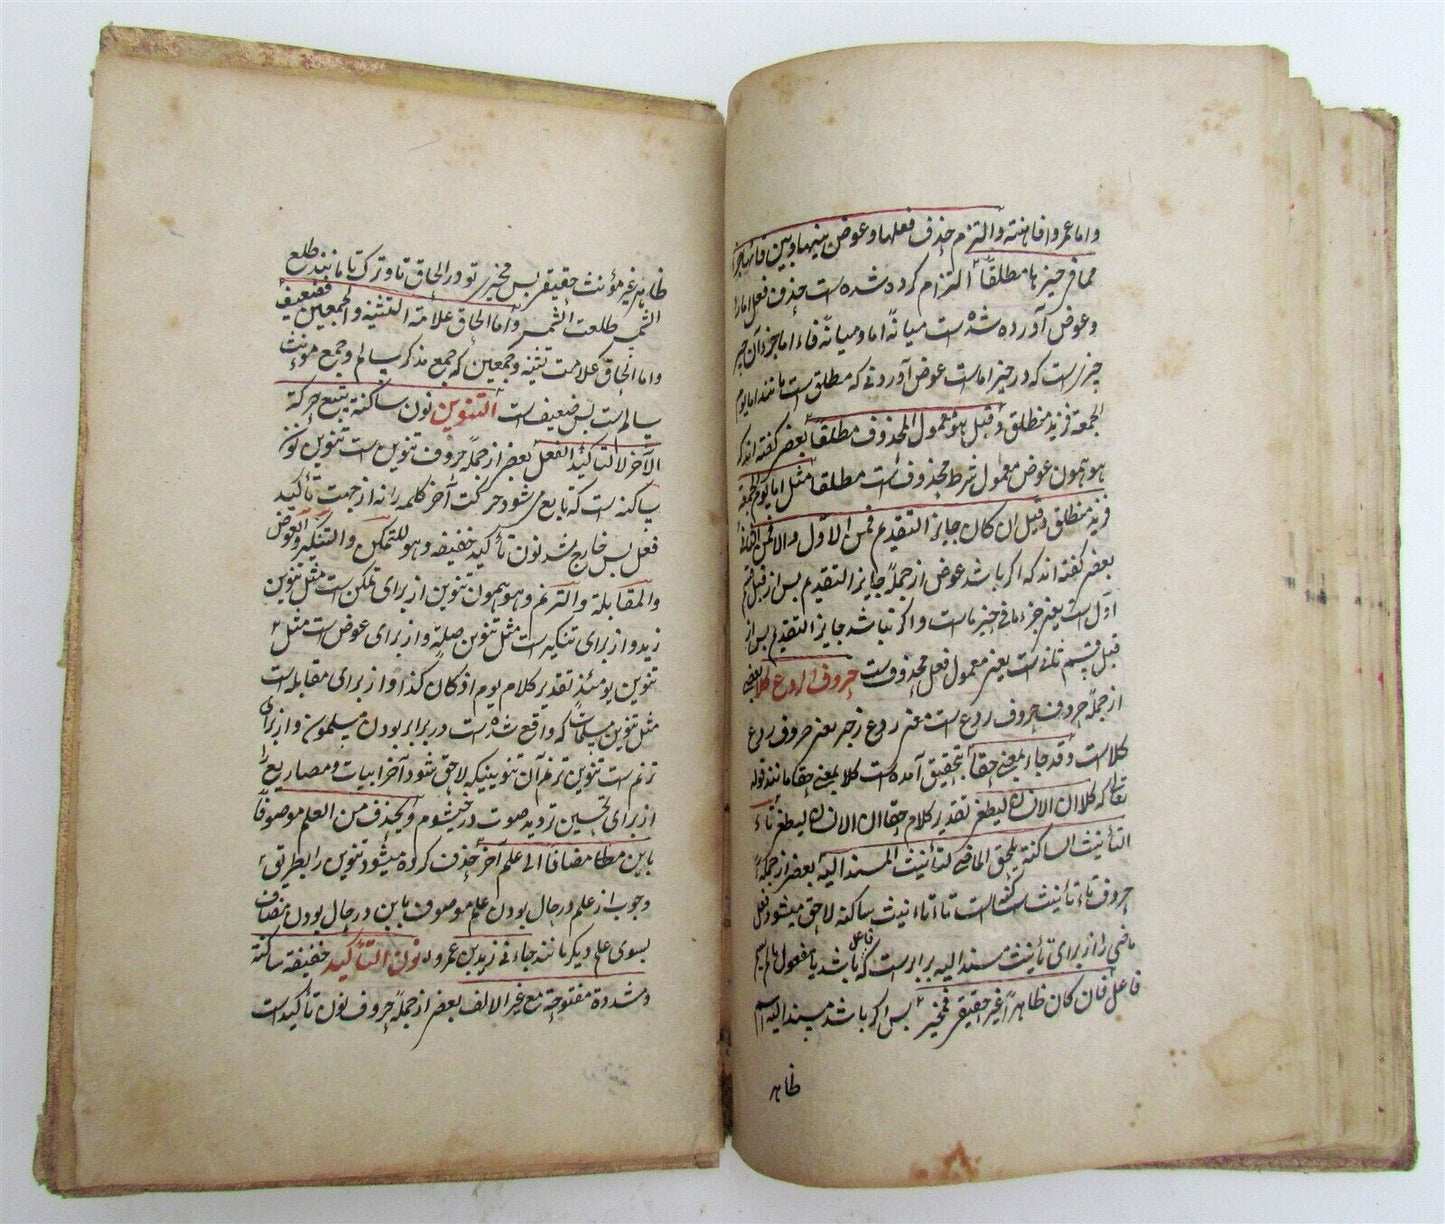 واما عمروا فاهنته والتزم حذف فعلها وعوض بينهما وبين فائها جزء
مما فی حیزها مطلقا التزام کرده شده است حذف فعل امارا
وعوض آورده شده است میانه اما ومیانه فاء اما جزء آن چیز
چیزاست که در حیز اماست عوض آوردنی که مطلق است مانند اما یوم
الجمعة فزید منطلق وقیل هو معمول المحذوف مطلقا بعضی گفته اند که
هو همون عوض معمول شرط محذوف است مطلقا مثل اما یوم الجمعة
فزید منطلق وقیل ان کان جایز التقدیم فمن الاول والا فمن الثانی
بعضی گفته اند که اگر باشد عوض از جمله جایز التقدیم پس از قبل قسم
اول است یعنی جزء مافی حیزها است واگر نباشد جایز التقدیم پس از
قبل قسم ثانی است یعنی معمول فعل محذوفست حروف الردع کلا بعضی
از جمله حروف حروف ردع است معنی ردع زجر یعنی حروف ردع
کلا است وقد جاء بمعنی حقا بتحقیق آمده است کلا بمعنی حقا مانند قوله
تعالی که کلا ان الانسان لیطغی بتقدیر کلام حقا ان الانسان لیطغی تاء
التأنیث الساکنة یلحق الماضی لتأنیث المسند الیه بعضی از جمله
حروف تاء تأنیث ساکنه است تاء تاءنیث ساکنه لاحق میشود فعل
ماضی را از برای تأنیث مسند الیه برابر است که فاعل باشد یا مفعول مالم یسم
فاعل فان کان ظاهرا غیر حقیقی فمخیر پس اگر باشد مسند الیه اسم
ظاهر
ظاهر غیر مؤنث حقیقی پس مخیری تو در الحاق تا وترک تا مانند طلع
الشمس طلعت الشمس واما الحاق علامة التثنیه والجمعین فضعیف
واما الحاق علامت تثنیه وجمعین که جمع مذکر سالم وجمع مونث
سالم است پس ضعیف است التنوین نون ساکنة یتبع حرکة
الآخر لا لتاکید الفعل بعضی از جمله حروف تنوین است تنوین نون
ساکنه است که تابع میشود حرکت آخر کلمه را نه از جهت تأکید
فعل پس خارج شد نون تأکید خفیفه وهو للتمکن والتنکیر والعوض
والمقابلة والترنم وهو همون تنوین از برای تمکن است مثل تنوین
زید واز برای تنکیر است مثل تنوین صلة واز برای عوض است مثل
تنوین یومئذ بتقدیر کلام یوم اذ کان کذا واز برای مقابله است
مثل تنوین مسلمات که واقع شده است در برابر بودن مسلمون واز برای
ترنم است تنوین ترنم آن تنوینیکه لاحق شود آخر ابیات ومصاریع را
از برای تحسین تردید صوت در خیشوم ویحذف من العلم موصوفا
بابن مطلقا مضافا الی علم آخر حذف کرده میشود تنوین را بطریق
وجوب از علم در حال بودن علم موصوف بابن در حال بودن مضاف
بسوی علم دیگر مانند جاءنی زید بن عمرو نون التأکید خفیفة ساکنة
ومشددة مفتوحة مع غیر الالف بعضی از جمله حروف نون تأکید است